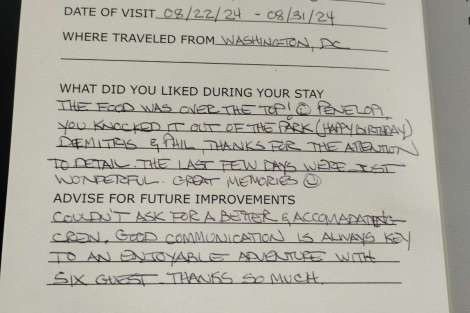 DATE OF VISIT 08/22/24 - 08/31/24
WHERE TRAVELED FROM WASHINGTON, DC
WHAT DID YOU LIKED DURING YOUR STAY
THE FOOD WAS OVER THE TOP! ☺ PENELOPI,
YOU KNOCKED IT OUT OF THE PARK (HAPPY BIRTHDAY)
DEMITRIS & PHIL, THANKS FOR THE ATTENTION
TO DETAIL. THE LAST FEW DAYS WERE JUST
WONDERFUL. GREAT MEMORIES ☺
ADVISE FOR FUTURE IMPROVEMENTS
COULDN'T ASK FOR A BETTER & ACCOMADATING
CREW. GOOD COMMUNICATION IS ALWAYS KEY
TO AN ENJOYABLE ADVENTURE WITH
SIX GUEST. THANKS SO MUCH.